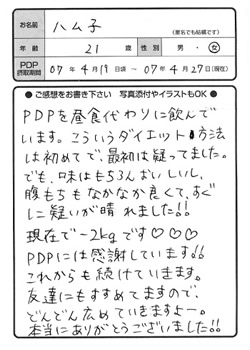 お名前 ハム子
(匿名でも結構です)
年齢 21歳 性別 男・女
PDP摂取期間 07年4月19日頃〜07年4月27日(現在)
●ご感想をお書き下さい 写真添付やイラストもOK●
PDPを昼食代わりに飲んで
います。こういうダイエット方法
は初めてで、最初は疑ってました。
でも、味はもちろんおいしいし、
腹もちもなかなか良くて、すぐ
に疑いが晴れました!!
現在で-2kgです♡♡♡
PDPには感謝しています!!
これからも続けていきます。
友達にもすすめてますので、
どんどん広めていきますよー。
本当にありがとうございました!!